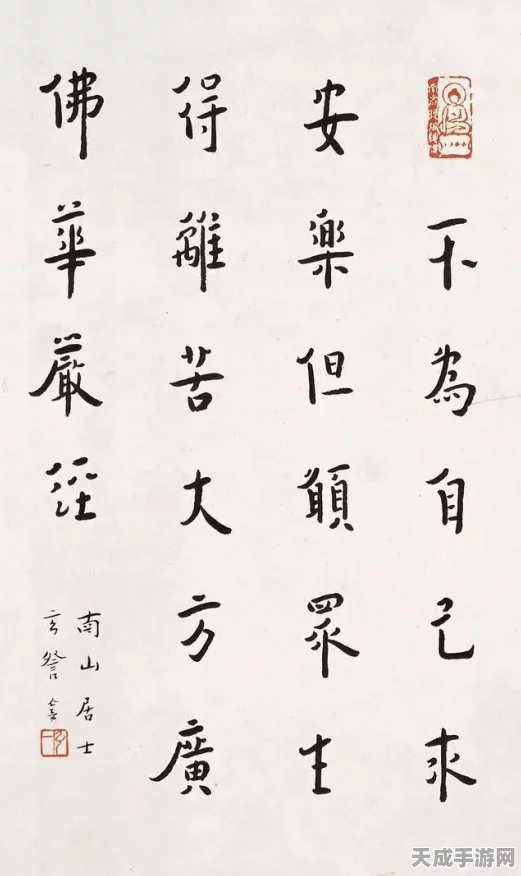 不為自己求
安樂但願眾生
得離苦大方廣
佛華嚴經
南山居士
玄詧書
天成手游网